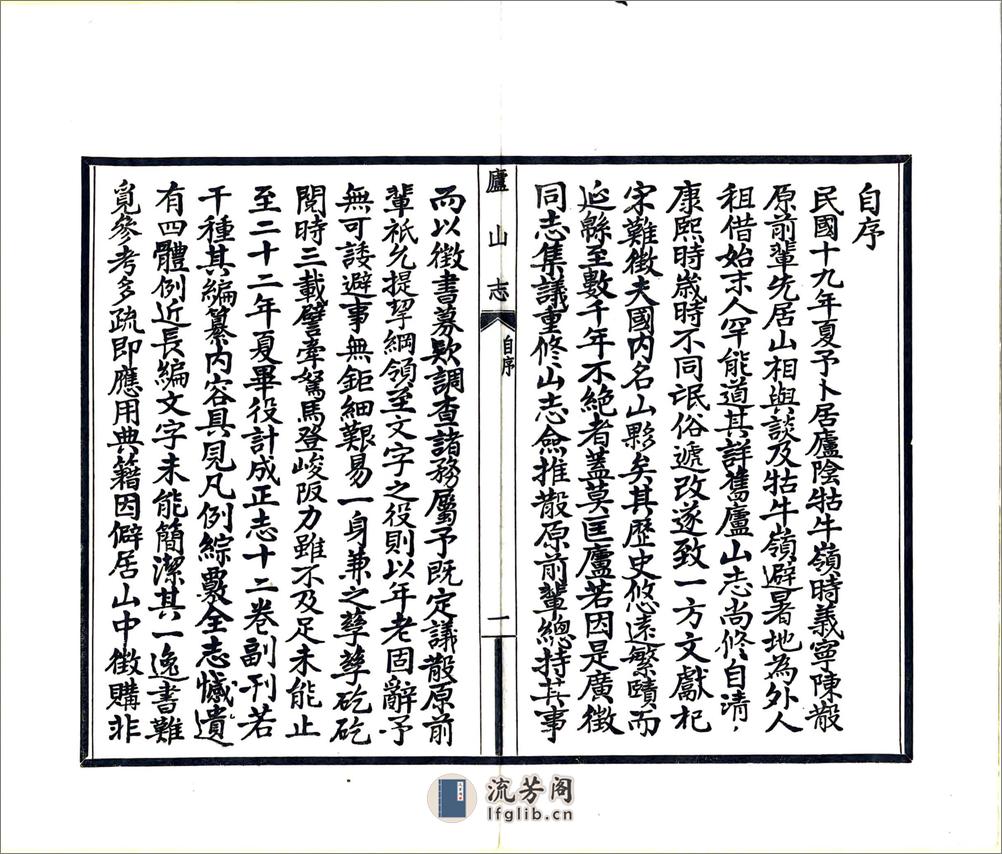 自序
民國十九年夏予卜居廬陰牯牛嶺時義寧陳散
原前輩先居山相與談及牯牛嶺避暑地為外人
租借始末人罕能道其詳舊廬山志尚修自清
康熙時歲時不同氓俗遞改遂致一方文獻杞
宋難徵夫國內名山夥矣其歷史悠遠繁賾而
延緜至數千年不絕者蓋莫匡廬若因是廣徵
同志集議重修山志僉推散原前輩總持其事
廬山志
自序
一
而以徵書募款調查諸務屬予既定議散原前
輩祇允提挈綱領至文字之役則以年老固辭予
無可諉避事無鉅細艱易一身兼之孳孳矻矻
閱時三載譬牽駑馬登峻阪力雖不及足未能止
至二十二年夏畢役計成正志十二卷副刊若
干種其編纂內容具見凡例綜覈全志憾遺
有四體例近長編文字未能簡潔其一逸書難
覓參考多疏即應用典籍因僻居山中徵購非
流芳阁
lfglib.cn